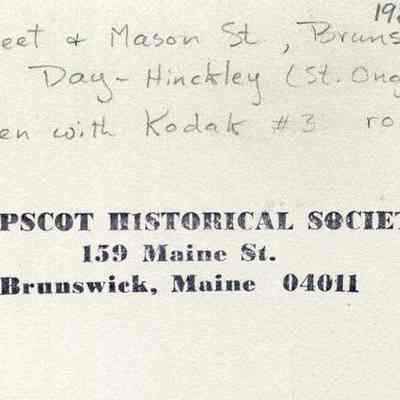 192
eet & Mason St., Bruns
Day - Hinckley (St. Ong
en with Kodak #3 ro
PSCOT HISTORICAL SOCIET
159 Maine St.
Brunswick, Maine 04011